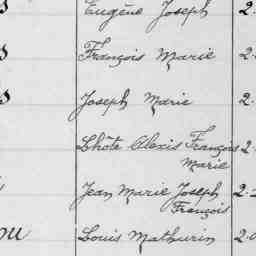 Eugène Joseph 2
François Marie 2
Joseph Marie 2.
Lhôte Alexis François 2.
Marie
Jean Marie Joseph 2.
François
ou Louis Mathurin 2.